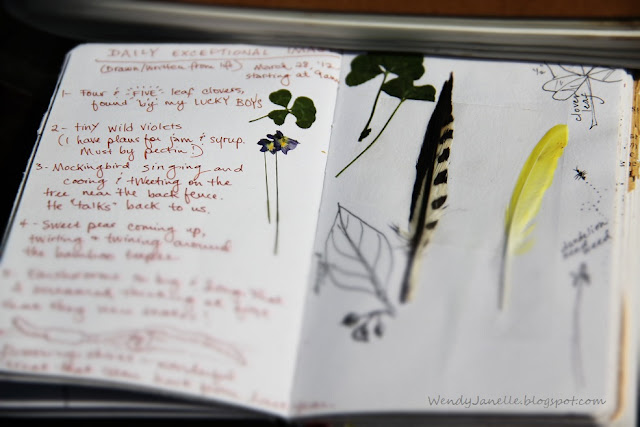 DAILY EXCEPTIONAL
(Drawn/written from life) March 28, '12
starting at 9am
1- Four & FIVE leaf clovers,
found by my LUCKY BOYS
2- tiny wild violets
(I have plans for jam & syrup.
Must buy pectin!)
3- Mockingbird singing and
cooing & tweeting on the
tree near the back fence.
He "talks" back to us.
4- Sweet peas coming up,
twirling & twining around
the bamboo teepee.
so big & long that
I screamed thinking at first
that they were snakes!
clover
leaf
dandelion
seed
WendyJanelle.blogspot.com